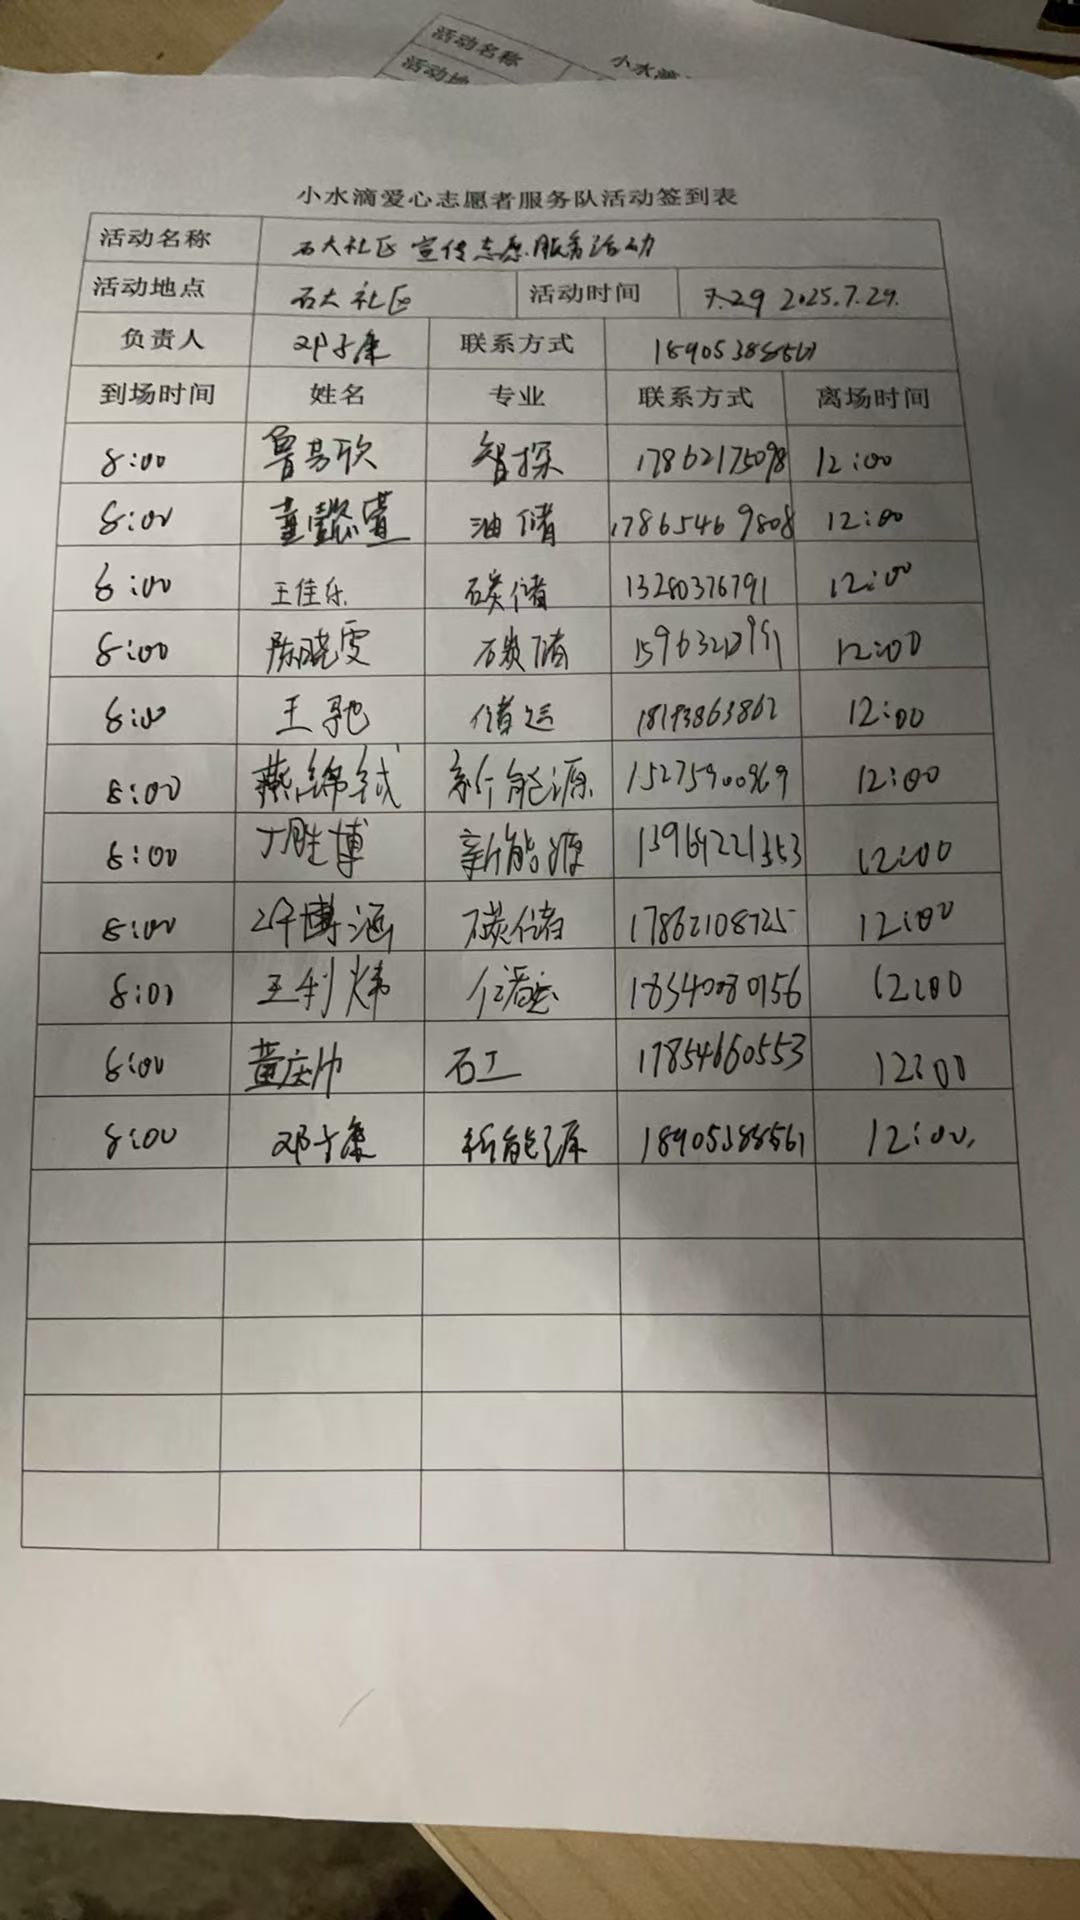 活动名称 小水滴
活动地
小水滴爱心志愿者服务队活动签到表
活动名称 石大社区宣传志愿服务活动
活动地点 石大社区 活动时间 7.29 2025.7.29.
负责人 邓子康 联系方式 18905388561
到场时间 姓名 专业 联系方式 离场时间
8:00 鲁芸欣 智探 17862175098 12:00
8:00 董懿萱 油储 17865469808 12:00
8:00 王佳乐 碳储 13280376791 12:00
8:00 陈晓雯 碳储 12:00
8:00 王驰 储运 18193863862 12:00
8:00 燕锦铖 新能源 15275900969 12:00
8:00 丁胜博 新能源 13964221353 12:00
8:00 博涵 碳储 17862108725 12:00
8:00 王利炜 储运 18340080156 12:00
8:00 黄庆帅 石工 17854660553 12:00
8:00 邓子康 新能源 18905388561 12:00.